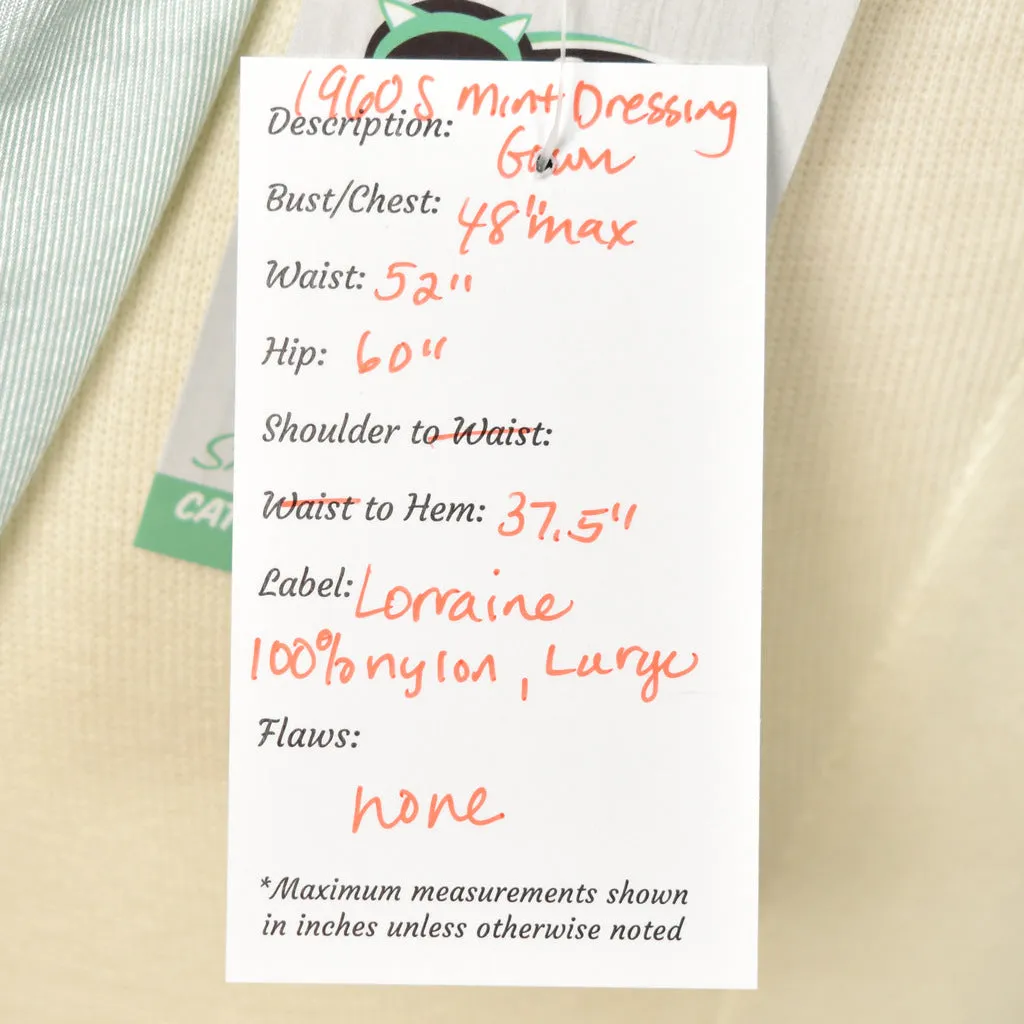 Description: 1960s Mint Dressing
Gown
Bust/Chest: 48" max
Waist: 52"
Hip: 60"
Shoulder to Waist:
Waist to Hem: 37.5"
Label: Lorraine
100% nylon, Large
Flaws:
none
*Maximum measurements shown
in inches unless otherwise noted
CAT